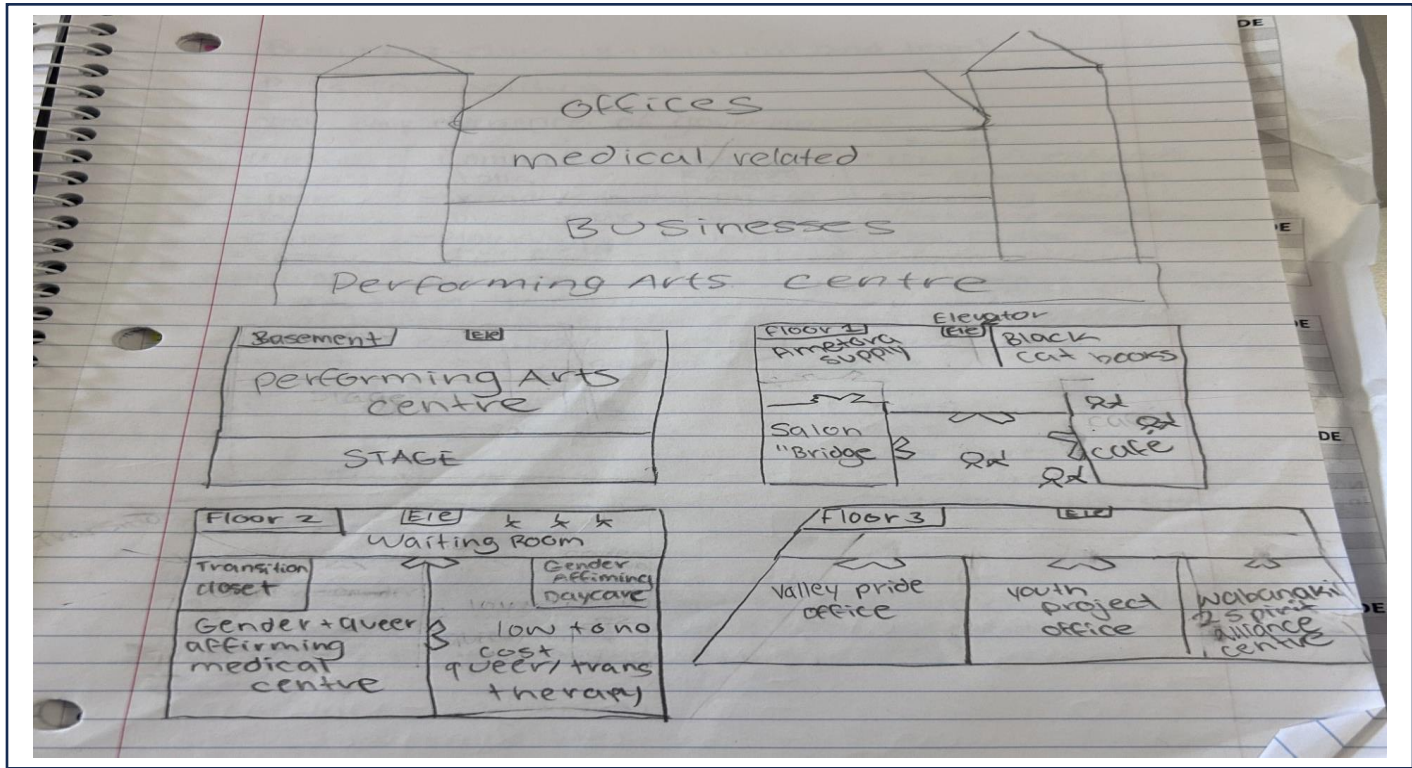 offices
medical/related
Businesses
Performing Arts centre
Basement
Ele
performing Arts
centre
STAGE
Elevator
Floor 1
Ele
Ametora
supply
Black
cat books
Salon
"Bridge
cafe
Floor 2
Ele
Waiting Room
Transition
closet
Gender
Affiming
Daycare
Gender + queer
affirming
medical
centre
low to no
cost
queer/trans
therapy
Floor 3
Ele
Valley pride
office
youth
project
office
Wabanakii
2 spirit
alliance
centre
DE
E
E
DE
DE